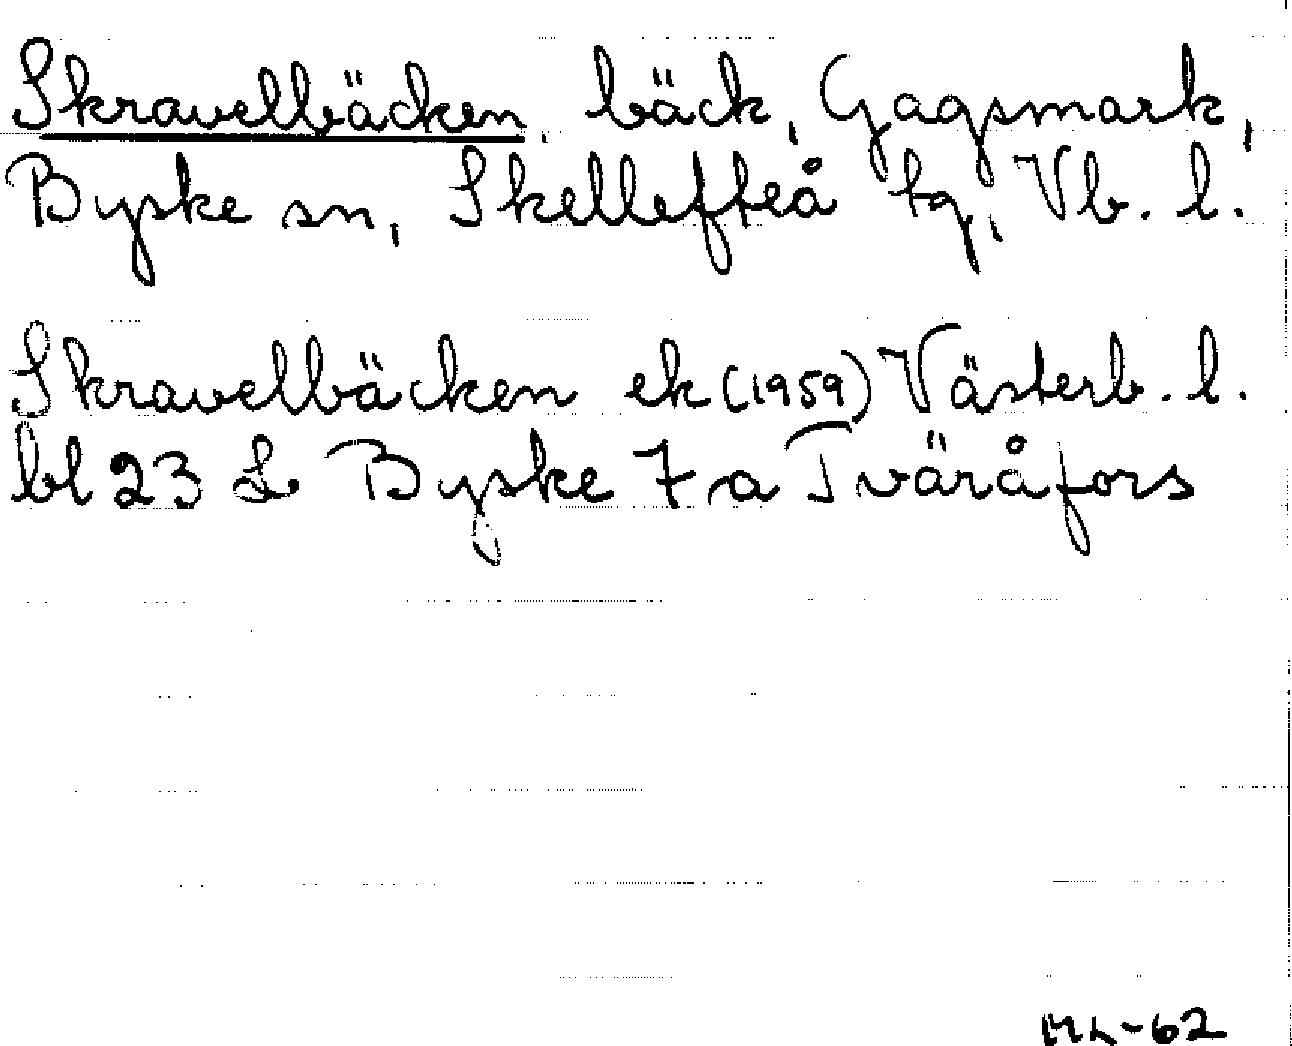 Skravelbäcken, bäck, Gagsmark,
Byske sn, Skellefteå tg, Vb. l.
Skravelbäcken ek (1959) Västerb. l.
bl 23 L Byske 7 a Tväråfors
-62